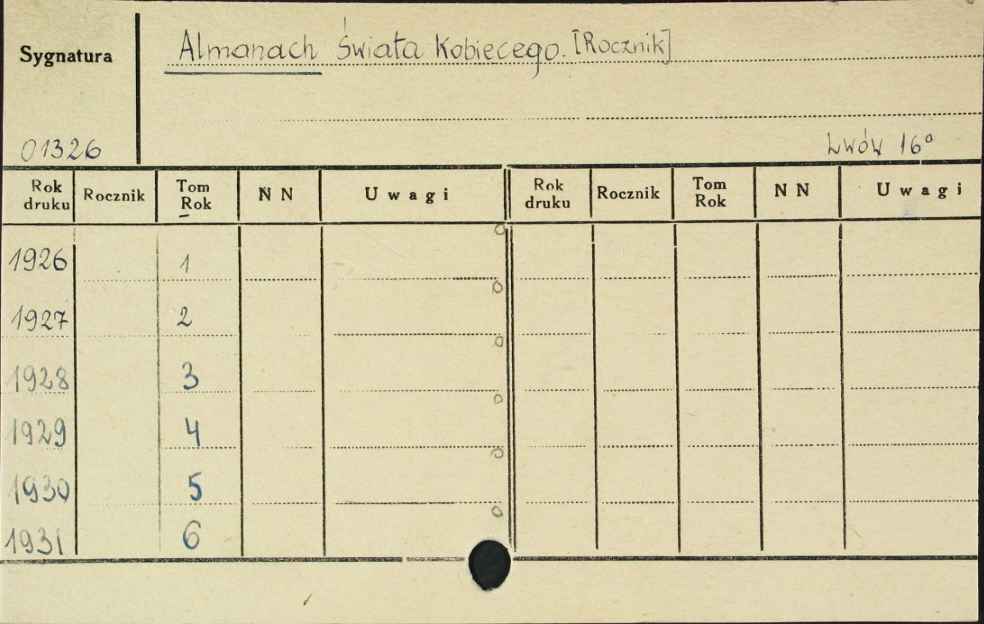 Sygnatura Almanach Świata Kobiecego. [Rocznik]
01326 Lwów 16°
Rok druku Rocznik Tom Rok N N Uwagi Rok druku Rocznik Tom Rok N N Uwagi
1926 1 o
1927 2 o
1928 3 o
1929 4 o
1930 5 o
1931 6 o